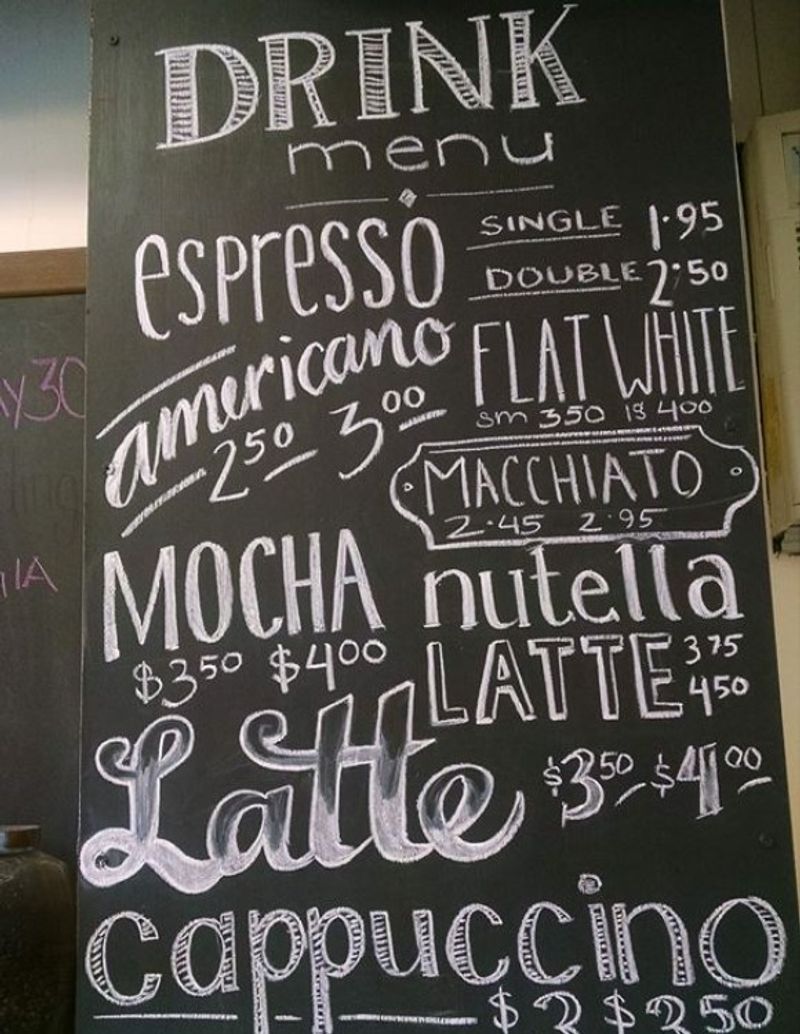 DRINK
menu
espresso
SINGLE 1.95
DOUBLE 2.50
americano
250 300
FLAT WHITE
sm 350 lg 400
MACCHIATO
2.45 2.95
MOCHA
$350 $400
nutella
LATTE 375
450
Latte $350 $400
cappuccino